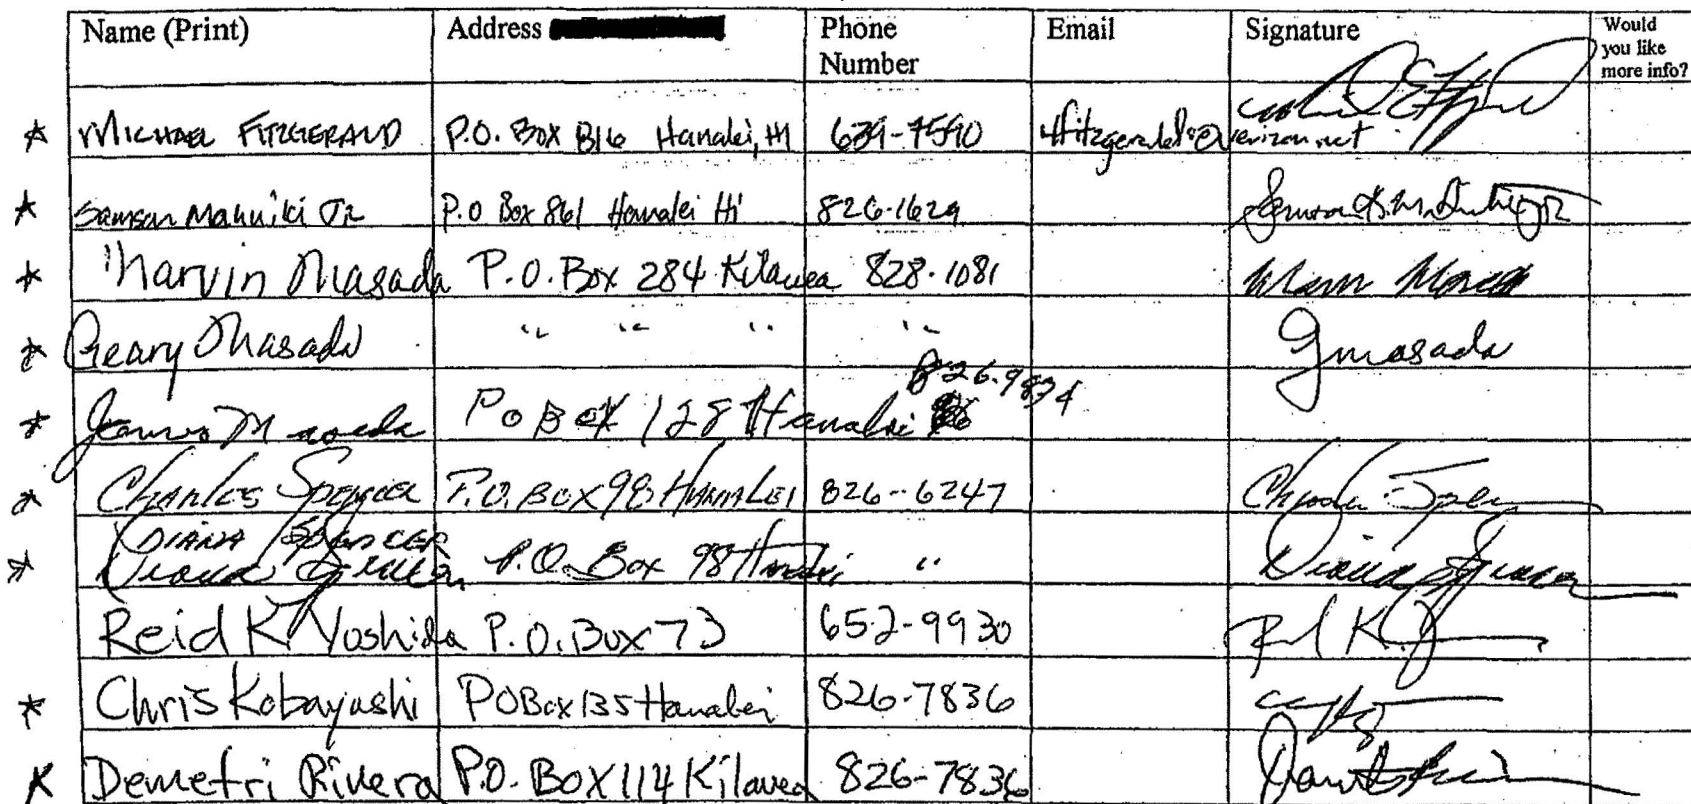 Name (Print) Address Phone Number Email Signature Would you like more info?
MICHAEL FITZGERALD P.O. BOX B16 Hanalei, HI 639-7590
Samson Mahuiki Jr P.O Box 861 Hanalei Hi 826-1629
Marvin Masada P.O. Box 284 Kilauea 828-1081
Geary Masada " " " " Gmasada
James Masada PO BOX 128 Hanalei 826-9834
Charles Spencer P.O. BOX 98 HANALEI 826-6247
DIANA SPENCER
Diana Spencer P.O. Box 98 Hanalei " Diana Spencer
Reid K Yoshida P.O. Box 73 652-9930
Chris Kobayashi PO Box 135 Hanalei 826-7836
Demetri Rivera P.O. BOX 114 Kilauea 826-7836